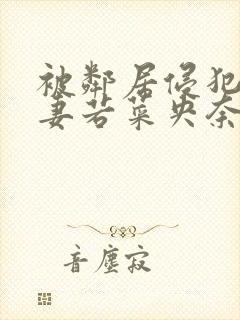 被鄰居侵犯
妻若菜央奈
音塵寂